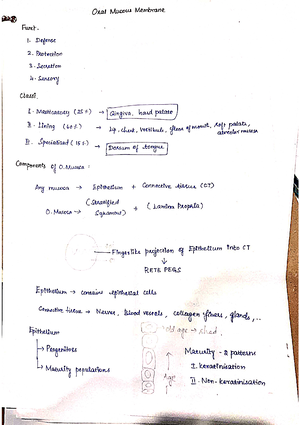 Oral Mucous Membrane
Funct.
1. Defense
2. Protection
3. Secretion
4. Sensory
Classi.
I. Masticatory (25%) → Gingiva, hard palate
II. Lining (60%) → Lip, cheek, vestibule, floor of mouth, soft palate, alveolar mucosa
III. Specialized (15%) → Dorsum of tongue
Components of O.Mucosa :
Any mucosa → Epithelium + Connective tissue (CT)
O.Mucosa → (Stratified Squamous) + (Lamina Propria)
Fingerlike projection of Epithelium into CT
↓
RETE PEGS
Epithelium → contains epithelial cells
Connective tissue → Nerves, blood vessels, collagen fibres, glands, ...
old age → shed.
Epithelium
→ Progenitors
→ Maturity populations
Age
Maturity - 2 patterns
I. keratinisation
II. Non-keratinisation